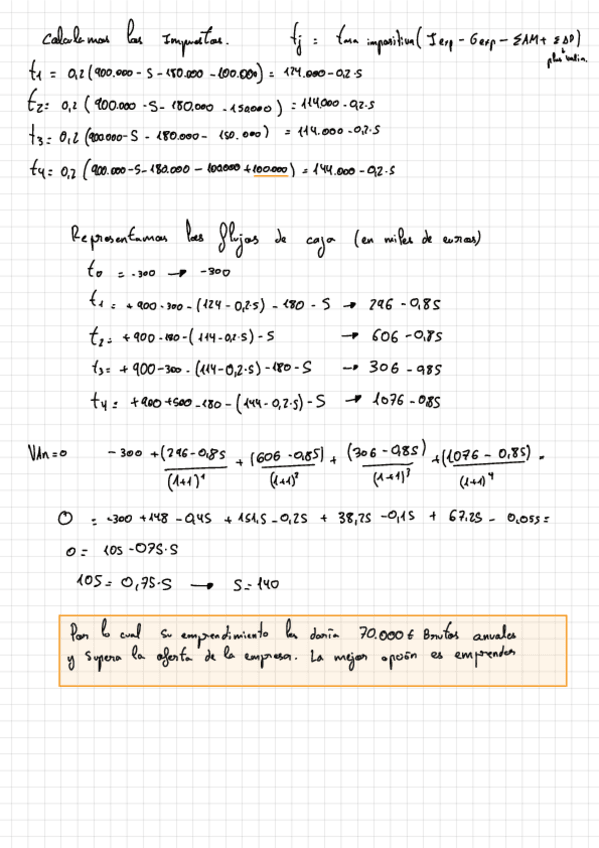 Calculemos los Impuestos. tj = tasa impositiva (I exp - G exp - ΣAM + ΣΔP)
plusvalía.
t1 = 0,2 (900.000 - S - 180.000 - 100.000) = 124.000 - 0,2·S
t2 = 0,2 (900.000 - S - 180.000 - 150000) = 114000 - 0,2·S
t3 = 0,2 (900.000 - S - 180.000 - 150.000) = 114.000 - 0,2·S
t4 = 0,2 (900.000 - S - 180.000 - 100000 + 100.000) = 144.000 - 0,2·S
Representamos los flujos de caja (en miles de euros)
t0 = -300 → -300
t1 = +900 - 300 - (124 - 0,2·S) - 180 - S → 296 - 0,8S
t2 = +900 - 180 - (114 - 0,2·S) - S → 606 - 0,8S
t3 = +900 - 300 - (114 - 0,2·S) - 180 - S → 306 - 0,8S
t4 = +900 + 500 - 180 - (144 - 0,2·S) - S → 1076 - 0,8S
VAN = 0 -300 + (296 - 0,8S)/(1+1)^1 + (606 - 0,8S)/(1+1)^2 + (306 - 0,8S)/(1+1)^3 + (1076 - 0,8S)/(1+1)^4 =
0 = -300 + 148 - 0,4S + 151,5 - 0,2S + 38,25 - 0,1S + 67,25 - 0,05S =
0 = 105 - 0,75·S
105 = 0,75·S → S = 140
Por lo cual su emprendimiento les daría 70.000 € Brutos anuales
y supera la oferta de la empresa. La mejor opción es emprender